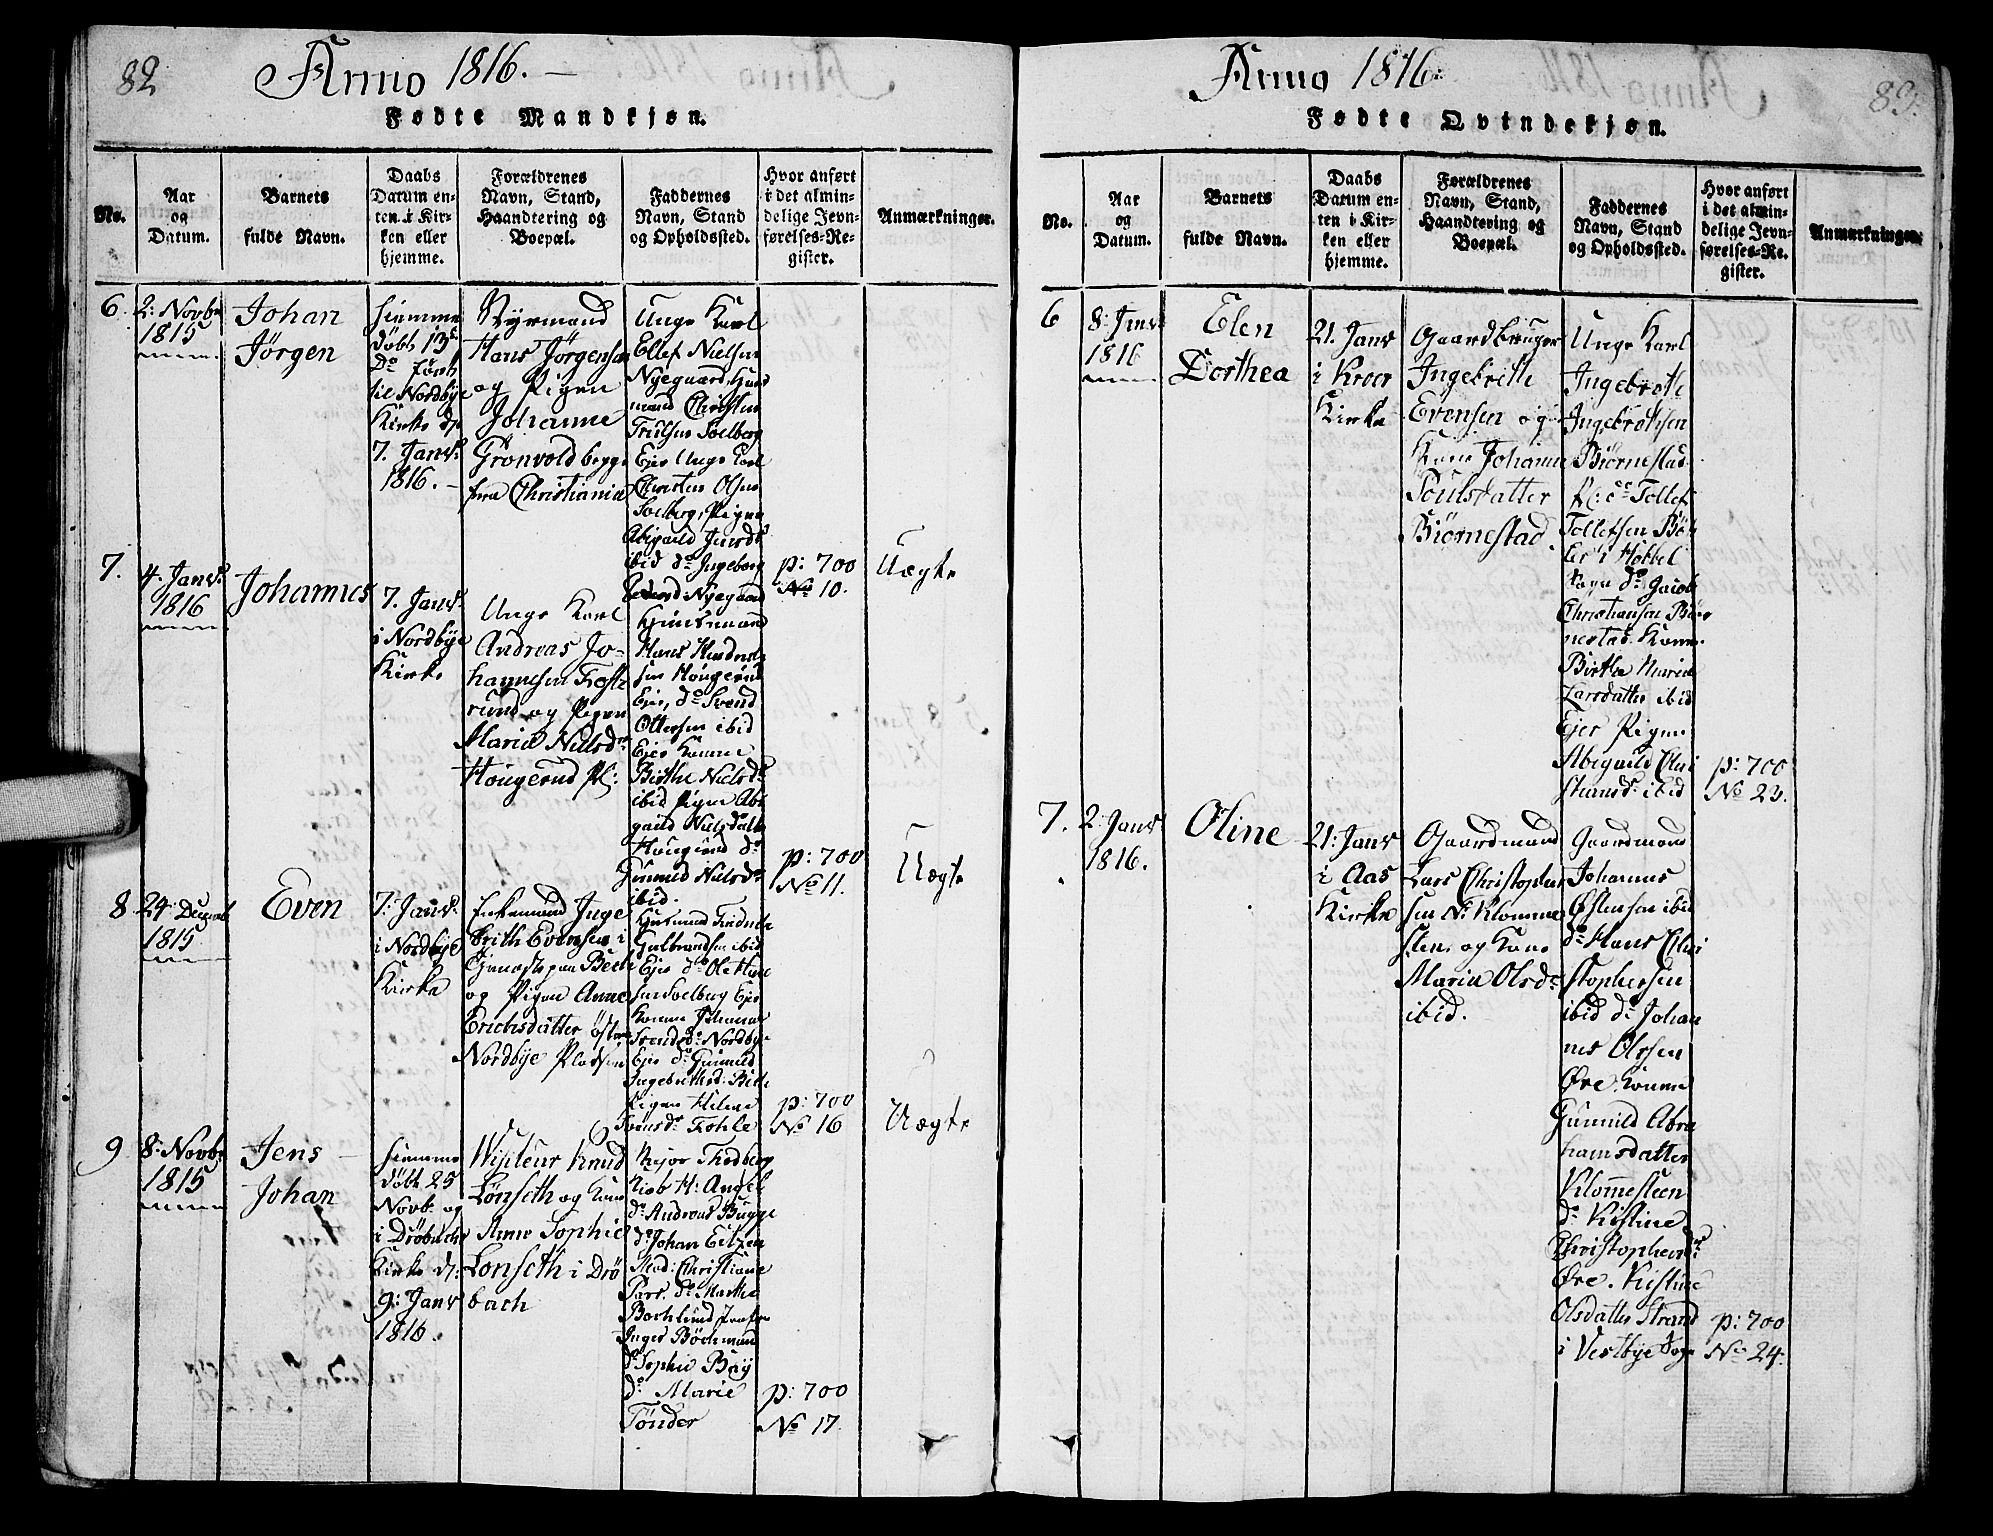 82
Anno 1816.
Fødte Mandkjøn.
No.
Aar
og
Datum.
Barnets
fulde Navn.
Daabs
Datum en-
ten i Kir-
ken eller
hjemme.
Forældrenes
Navn, Stand,
Haandtering og
Boepæl.
Faddernes
Navn, Stand
og Opholdssted.
Hvor anført
i det almin-
delige Jevn-
førelses-Re-
gister.
Anmærkninger.
6
2: Novbr
1815
Johan
Jørgen
hiemme
døbt 13de
Do først
til Nordbye
Kirke d.
7. Janv:
1816.
Styrmand
Hans Jørgensen
og Pigen
Johanne
Grønvold begge
fra Christiania
Unge Karl
Ellef Nielsen
Nyegaard, Huus
mand Christen
Truelsen Solberg
Eier Unge Karl
Christen Olsen
Solberg, Pigen
Abigaild Jensdr
ibid do Ingeborg
Nyegaard
p: 700
No 10.
Uægte
7.
4. Janv:
1816
Johannes
7. Janv:
i Nordbye
Kirke
Unge Karl
Andreas Jo-
hannesen Foste
rund og Pigen
Maria Nielsdr
Hougerud Pl:
Huusmand
Hans
sen Hougerud
Eier, do Svend
Ottersen ibid
Eier Konen
Birthe Nielsdr
ibid Pigen Abi
gaild Nielsdatter
Hougerud do
Gunnild Nielsdr
ibid.
p: 700
No 11.
Uægte
8
24: Decemb
1815
Even
7: Janv:
i Nordbye
Kirke
Enkemand Inge
brith Evensen i
Tieneste paa Bech
og Pigen Anne
Erichsdatter Østre
Nordbye Pladsen
Guulbrandsen ibid
Eier do Ole
sen Solberg Eier
Konen Johanne
Svendsdr Nordbye
Eier do Gunnild
Ingebrithsd:
Pigen Helene
Svensdr Fohle
p: 700
No 16
Uægte
9
8: Novbr
1815
Jens
Johan
hiemme
døbt 25
Novbr og
i Drøbachs
Kirke d:
9: Janv
1816.
Visiteur Knud
Lønseth og Kone
Anne Sophie
Lonseth i Drø
bach
Major Thodberg
Kiøb H: Angel
do Andreas Bugge
do Johan Eitzen
Mad: Christiane
Parr do Marthe
Bochlund Jomfru
Inger Bøchmand
do Sophie Bay
do Marie
Tønder
p: 700
No 17.
Anno 1816
83.
Fødte Qvindekjøn.
No.
Aar
og
Datum.
Barnets
fulde Navn.
Daabs
Datum en-
ten i Kir-
ken eller
hjemme.
Forældrenes
Navn, Stand,
Haandtering og
Boepæl.
Faddernes
Navn, Stand
og Opholdssted.
Hvor anført
i det almin-
delige Jevn-
førelses-Re-
gister.
Anmærkninger.
6
8: Janv
1816
Elen
Dorthea
21. Janv
i Kroer
Kirke
Gaardbruger
Ingebrith
Evensen og
Kone Johanne
Poulsdatter
Biørnestad.
Unge Karl
Ingebreth
Ingebrethsen
Biørnestad
Pl: do Tollef
Tollefsen Bø
Eier i Hobbel
Sogn do Jacob
Christiansen Biør
nestad. Konen
Birthe Maria
Larsdatter ibid
Eier Pigen
Abigaild Chri
stiansdr ibid
p: 700
No 23.
7.
2: Janv
1816.
Oline
21: Janv
i Aas
Kirke
Gaardmand
Lars Christopher
sen N: Klomme
sten og Kone
Maria Olsdr
ibid.
Gaardmand
Johannes
Østensen ibid
do Hans Chri
stophersen
ibid do Johan
nes Olssen
Øre. Konen
Gunnild Abra
hamsdatter
Klommesteen
do Kistine
Christophersdr
Øre. Kistine
Olsdatter Strand
i Vestbye Sogn
p: 700
No 24.